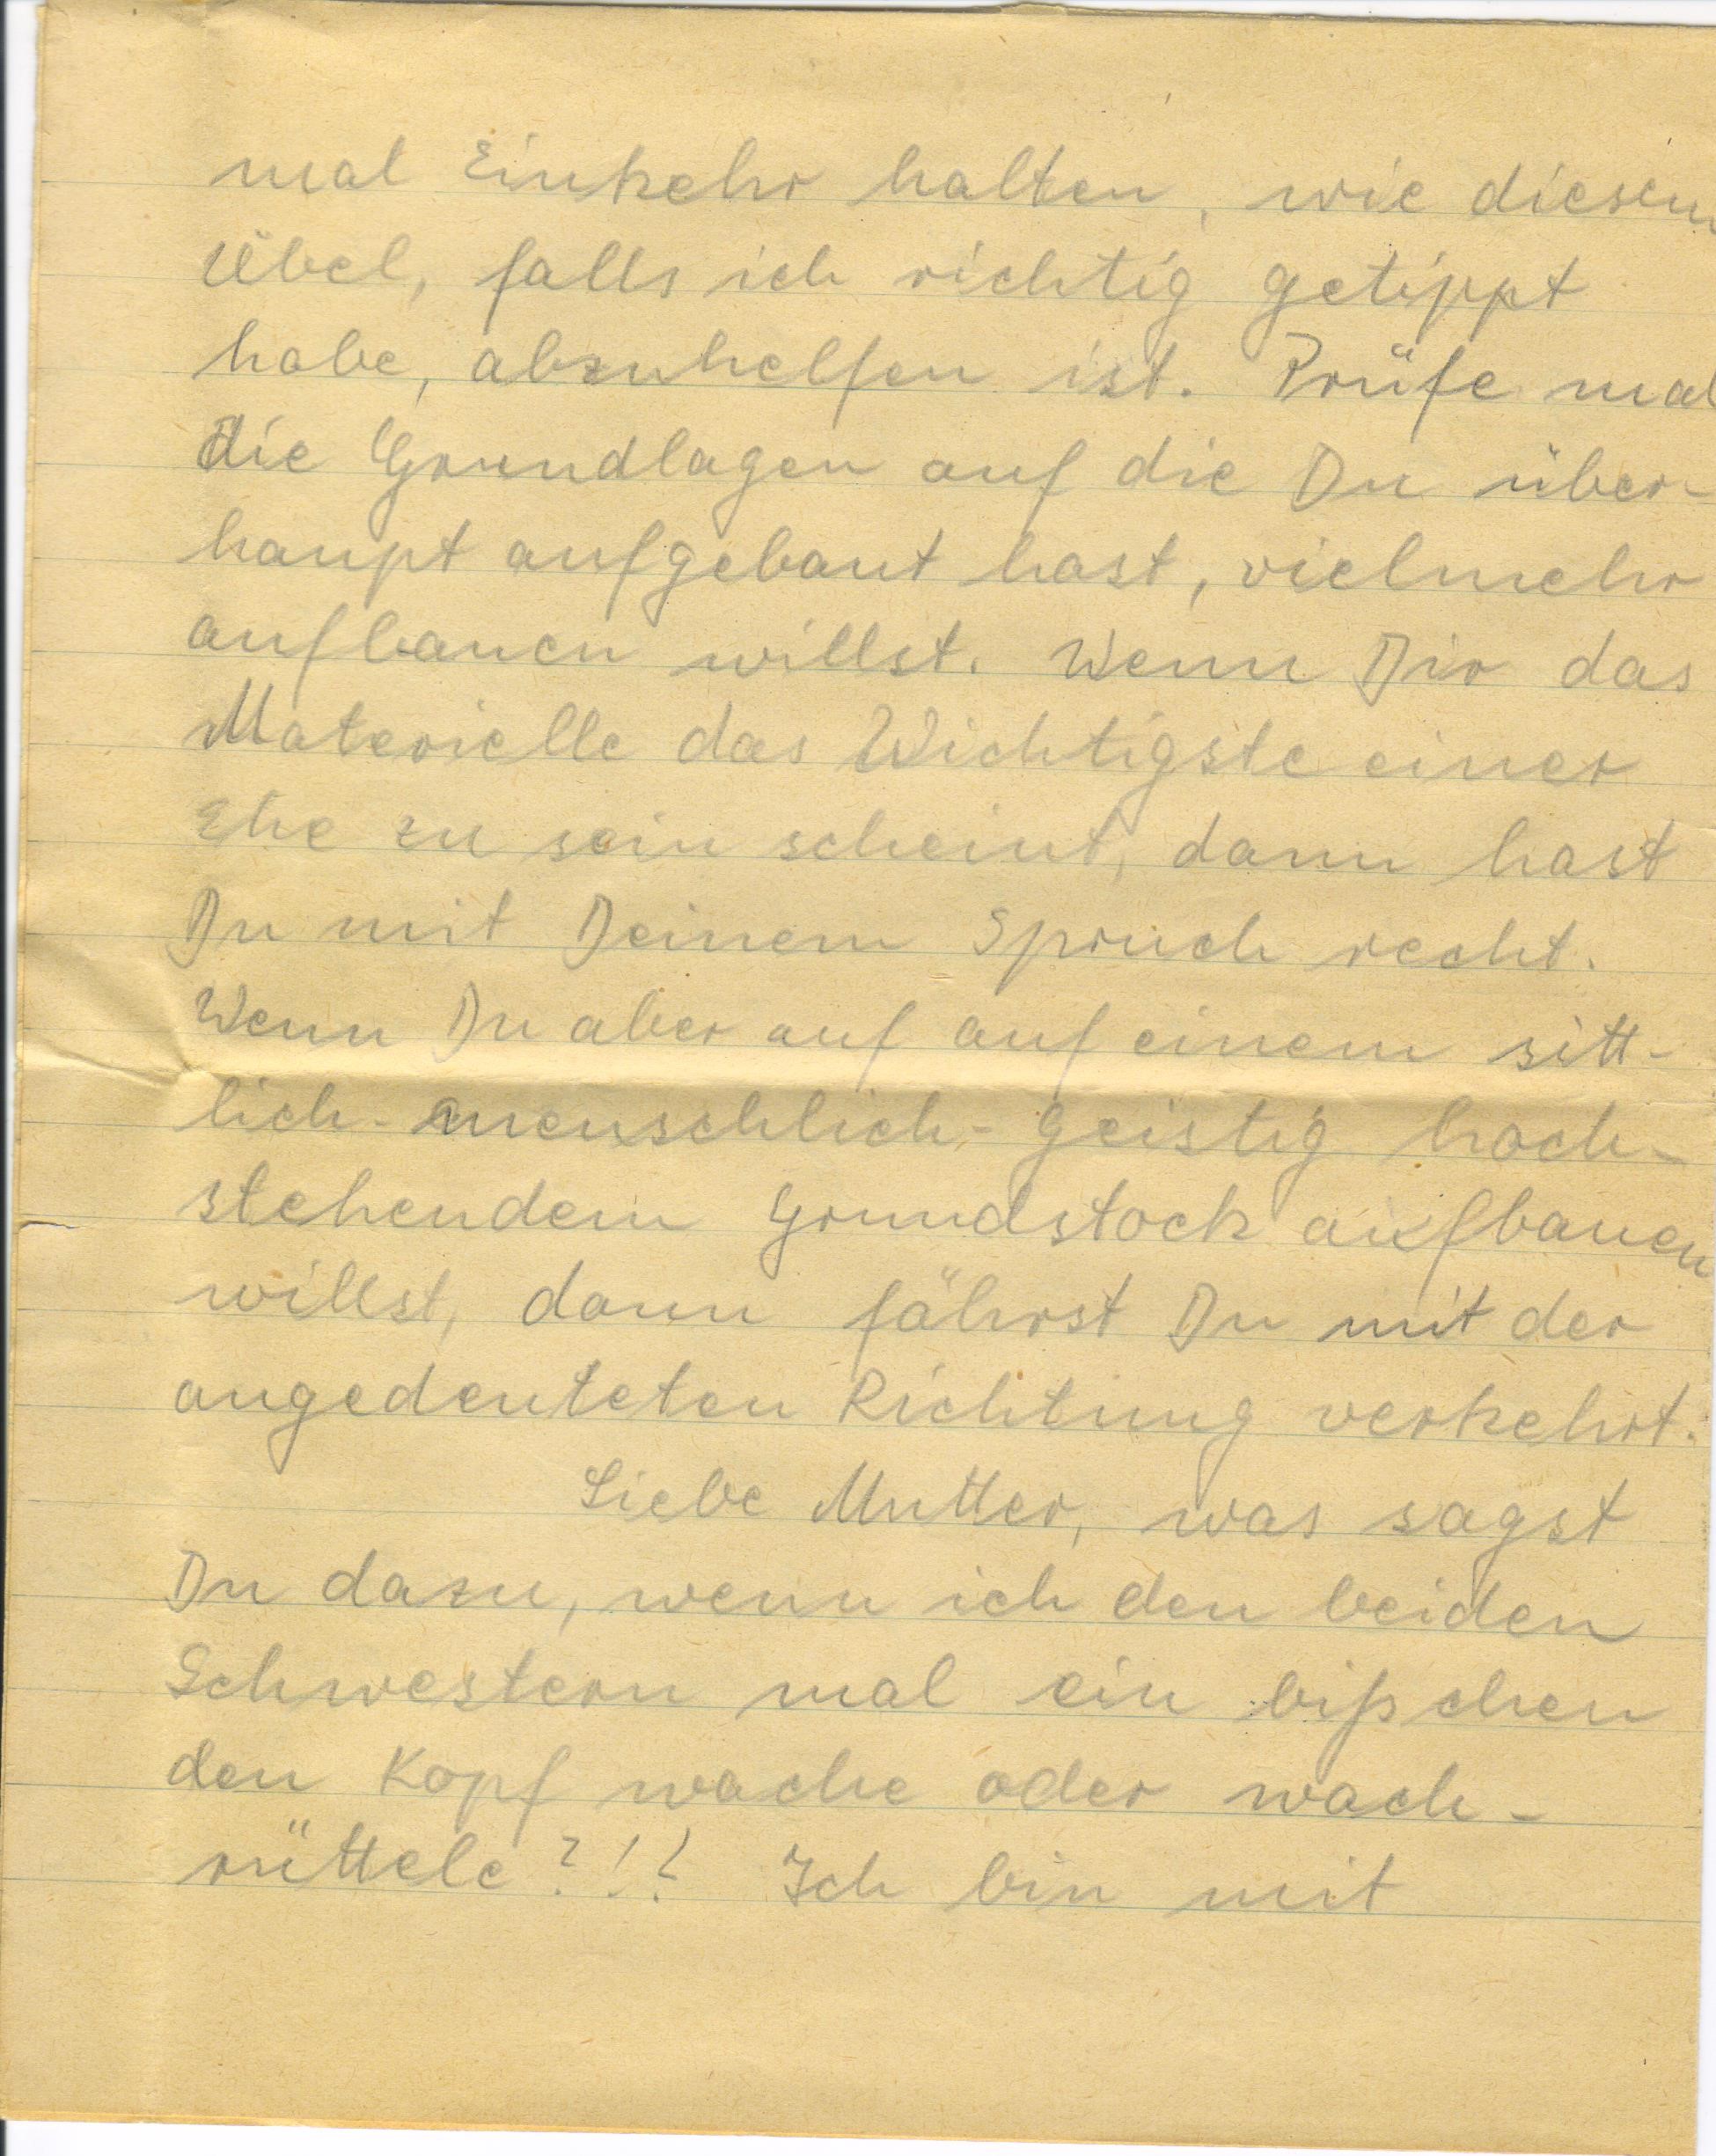 mal Einkehr halten, wie diesem
Übel, falls ich richtig getippt
habe, abzuhelfen ist. Prüfe mal
die Grundlagen auf die Du über-
haupt aufgebaut hast, vielmehr
aufbauen willst. Wenn Dir das
Materielle das Wichtigste einer
Ehe zu sein scheint, dann hast
Du mit Deinem Spruch recht.
Wenn Du aber auf auf einem sitt-
lich-menschlich-geistig hoch-
stehendem Grundstock aufbauen
willst, dann fährst Du mit der
angedeuteten Richtung verkehrt.
Liebe Mutter, was sagst
Du dazu, wenn ich den beiden
Schwestern mal ein bißchen
den Kopf wache oder wach-
rüttele?!? Ich bin mit